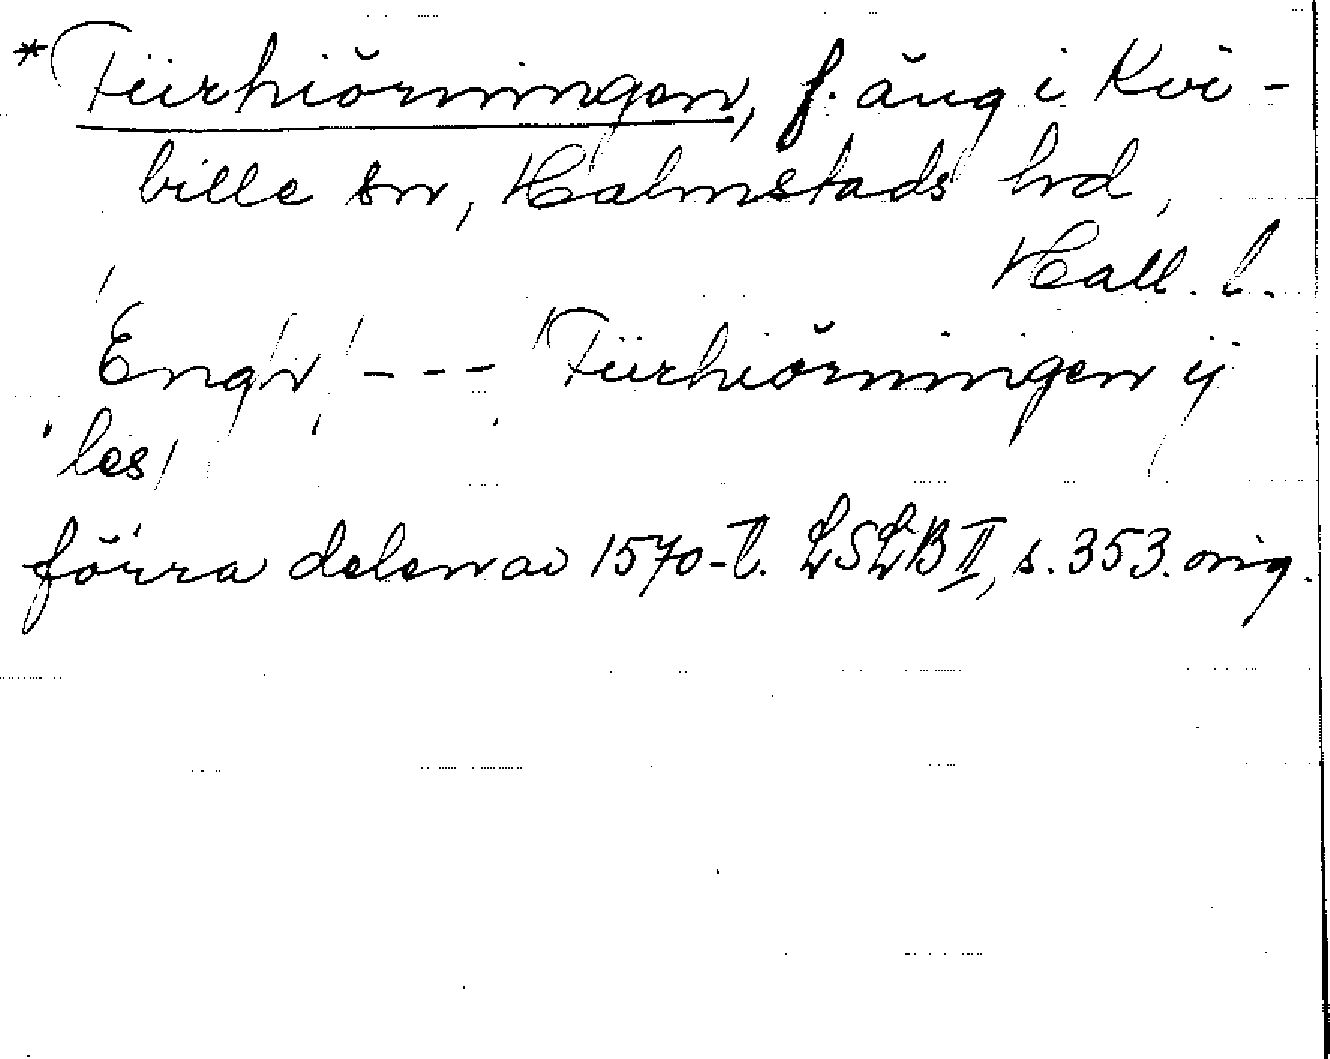 *Fiirhiörningen, f. äng i Kvi-
bille sn, Halmstads hd,
Hall. l.
Engh, --- Fiirhiörningen ij
les
förra delen av 1570-t. LSLB II, s. 353. orig.